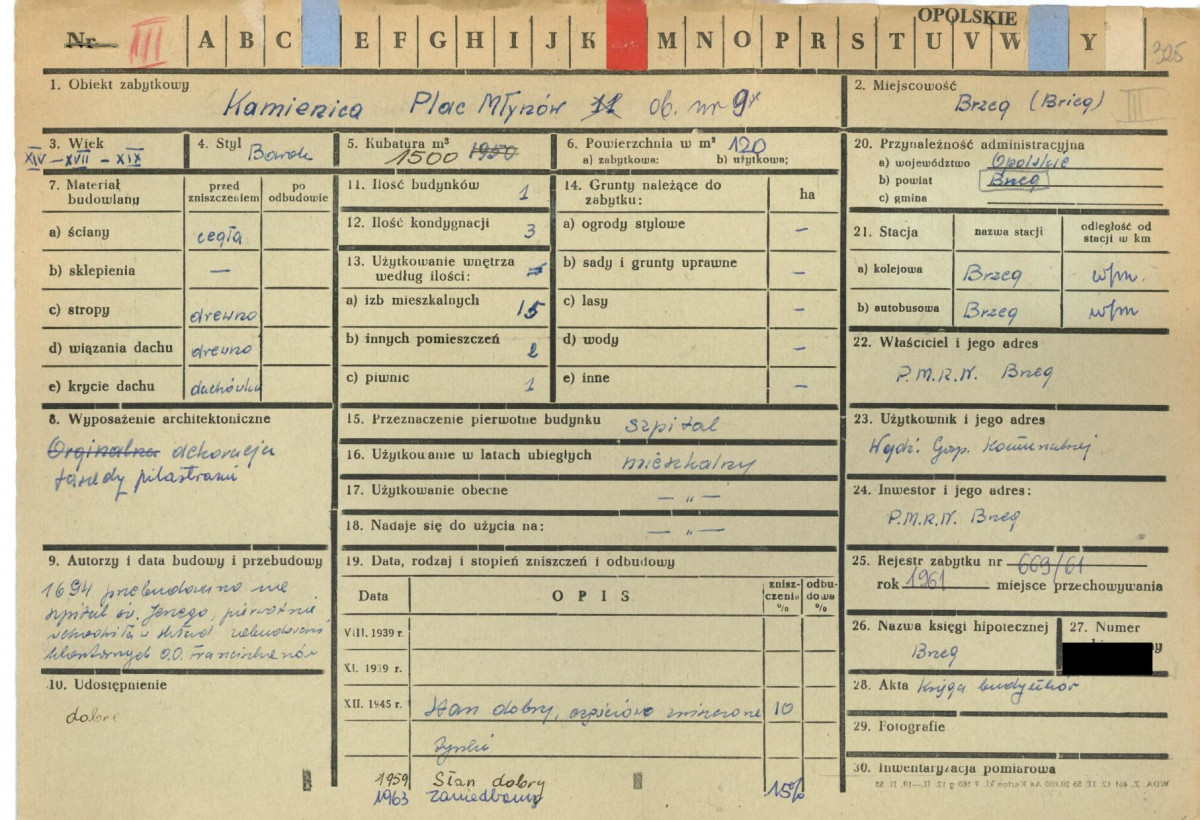 Nr III A B C E F G H I J K M N O P R S T U V W Y
OPOLSKIE
325
1. Obiekt zabytkowy
Kamienica Plac Młynów 11 ob. nr 9
2. Miejscowość
Brzeg (Brieg) III
3. Wiek
XIV - XVII - XIX
4. Styl
Barok
5. Kubatura m³
1500 1950
6. Powierzchnia w m² 120
a) zabytkowa: b) użytkowa:
7. Materiał budowlany
przed zniszczeniem
po odbudowie
a) ściany cegła
b) sklepienia —
c) stropy drewno
d) wiązania dachu drewno
e) krycie dachu dachówka
8. Wyposażenie architektoniczne
Orginalna dekoracja
fasady pilastrami
9. Autorzy i data budowy i przebudowy
1694 przebudowano na
szpital św. Jerzego, pierwotnie
wchodziła w skład zabudowań
klasztornych O.O. Franciszkanów
10. Udostępnienie
dobre
11. Ilość budynków 1
12. Ilość kondygnacji 3
13. Użytkowanie wnętrza
według ilości:
a) izb mieszkalnych 15
b) innych pomieszczeń 2
c) piwnic 1
14. Grunty należące do
zabytku: ha
a) ogrody stylowe –
b) sady i grunty uprawne –
c) lasy –
d) wody –
e) inne –
15. Przeznaczenie pierwotne budynku szpital
16. Użytkowanie w latach ubiegłych mieszkalny
17. Użytkowanie obecne — „ —
18. Nadaje się do użycia na: — „ —
19. Data, rodzaj i stopień zniszczeń i odbudowy
Data OPIS zniszczenie % odbudowa %
VIII. 1939 r.
XI. 1939 r.
XII. 1945 r. Stan dobry, częściowo zniszczone 10
tynki
1959 Stan dobry
1963 zaniedbany 15%
20. Przynależność administracyjna
a) województwo Opolskie
b) powiat Brzeg
c) gmina
21. Stacja nazwa stacji odległość od stacji w km
a) kolejowa Brzeg w/m.
b) autobusowa Brzeg w/m
22. Właściciel i jego adres
P.M.R.N. Brzeg
23. Użytkownik i jego adres
Wydź. Gosp. Komunalnej
24. Inwestor i jego adres:
P.M.R.N. Brzeg
25. Rejestr zabytku nr 669/61
rok 1961 miejsce przechowywania
26. Nazwa księgi hipotecznej
Brzeg
27. Numer
28. Akta Księga budynków
29. Fotografie
30. Inwentaryzacja pomiarowa